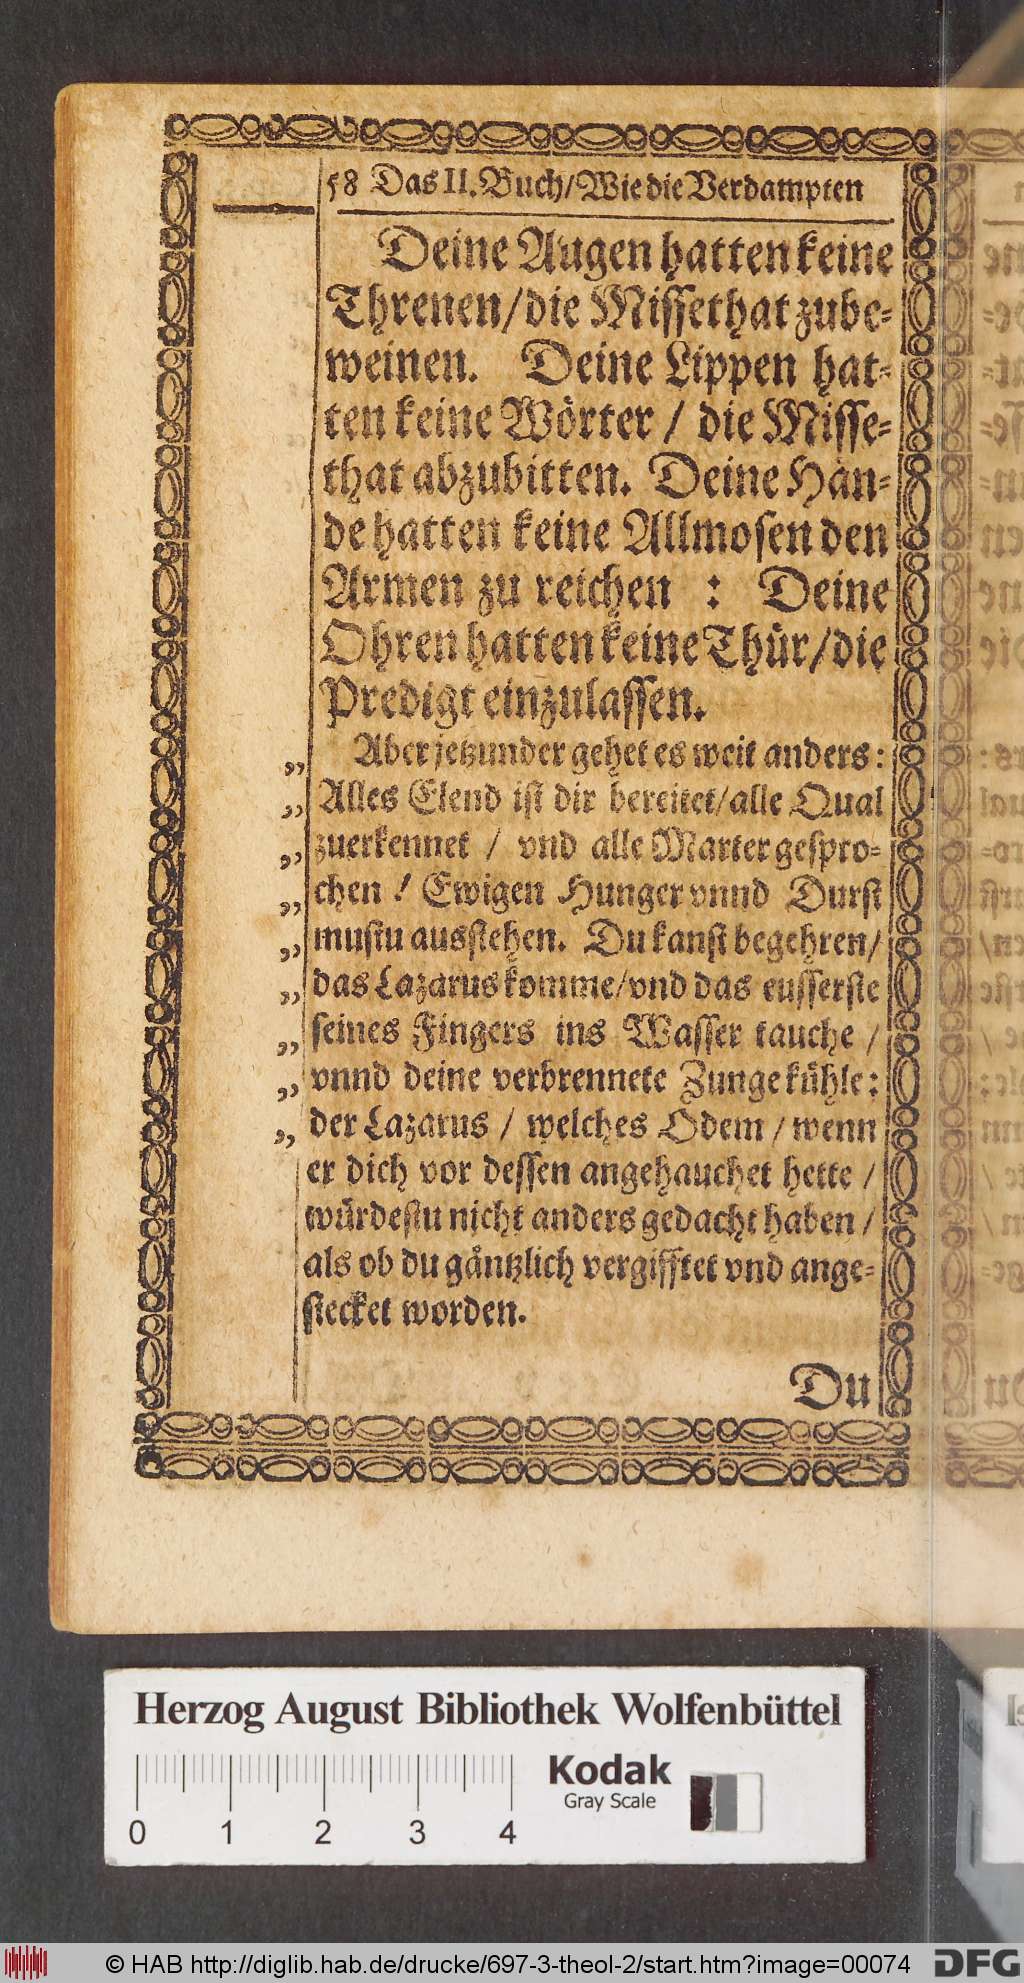 58 Das II. Buch/Wie die Verdampten
Deine Augen hatten keine
Threnen/die Missethat zube-
weinen. Deine Lippen hat-
ten keine Wörter / die Misse-
that abzubitten. Deine Hän-
de hatten keine Allmosen den
Armen zu reichen : Deine
Ohren hatten keine Thür/die
Predigt einzulassen.
„ Aber jetzunder gehet es weit anders:
„ Alles Elend ist dir bereitet/alle Qual
„ zuerkennet / vnd alle Marter gespro-
„ chen ! Ewigen Hunger vnnd Durst
„ mustu ausstehen. Du kanst begehren/
„ das Lazarus komme/vnd das eusserste
„ seines Fingers ins Wasser tauche /
„ vnnd deine verbrennete Zunge kühle:
„ der Lazarus / welches Odem / wenn
er dich vor dessen angehauchet hette /
würdestu nicht anders gedacht haben /
als ob du gäntzlich vergifftet vnd ange-
stecket worden.
Du
Herzog August Bibliothek Wolfenbüttel
Kodak
Gray Scale
0 1 2 3 4
© HAB http://diglib.hab.de/drucke/697-3-theol-2/start.htm?image=00074
DFG